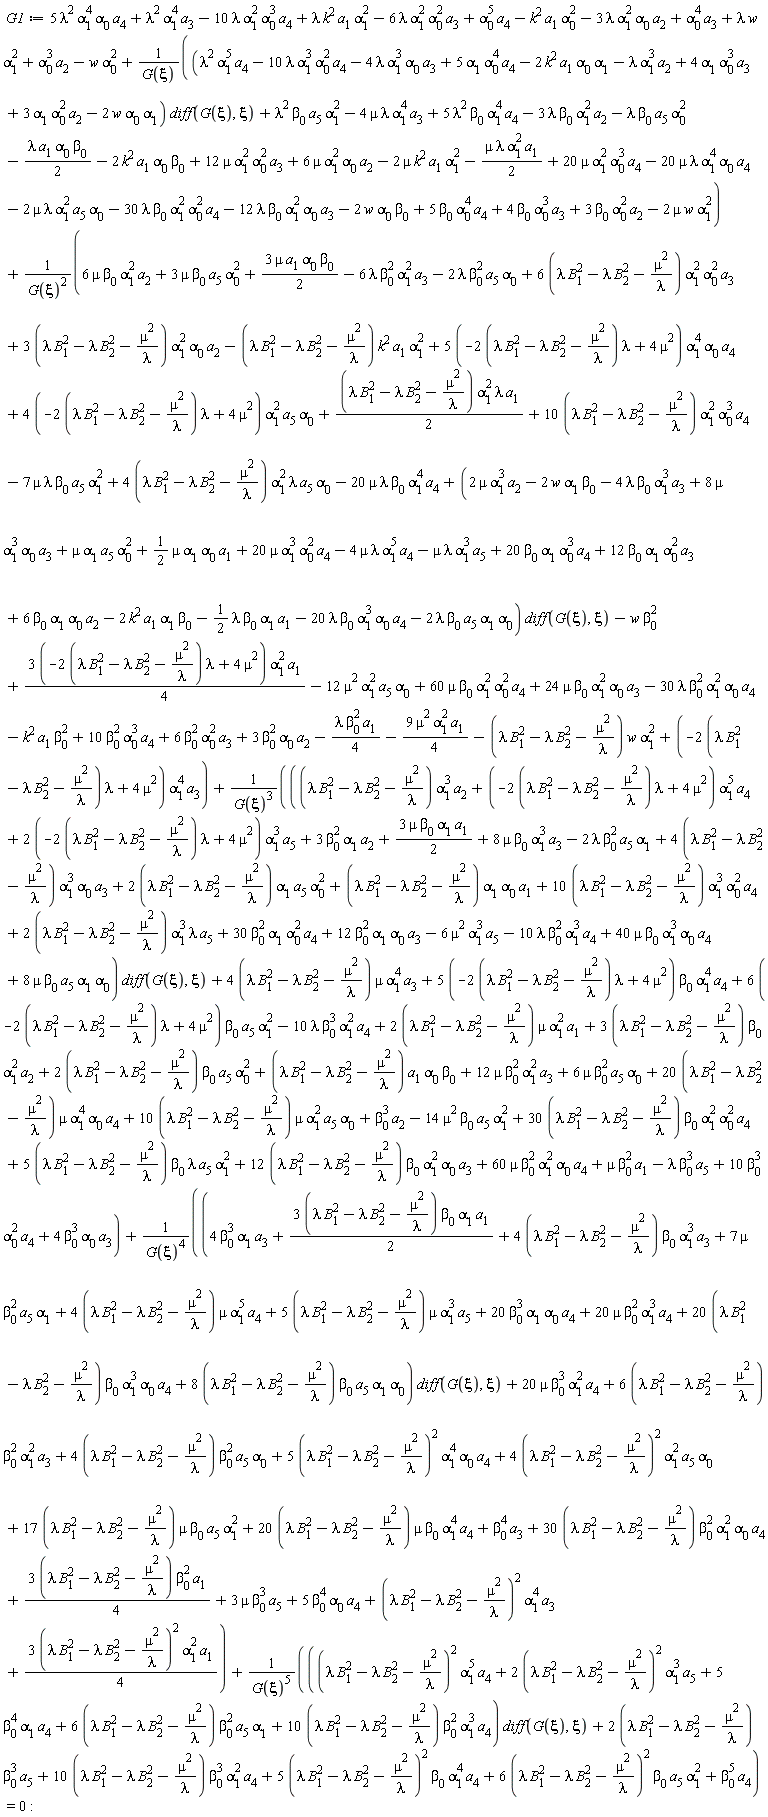 G1 := 5 λ² α₁⁴ α₀ a₄ + λ² α₁⁴ a₃ − 10 λ α₁² α₀³ a₄ + λ k² a₁ α₁² − 6 λ α₁² α₀² a₃ + α₀⁵ a₄ − k² a₁ α₀² − 3 λ α₁² α₀ a₂ + α₀⁴ a₃ + λ w
α₁² + α₀³ a₂ − w α₀² + 1/G(ξ) ((λ² α₁⁵ a₄ − 10 λ α₁³ α₀² a₄ − 4 λ α₁³ α₀ a₃ + 5 α₁ α₀⁴ a₄ − 2 k² a₁ α₀ α₁ − λ α₁³ a₂ + 4 α₁ α₀³ a₃
+ 3 α₁ α₀² a₂ − 2 w α₀ α₁) diff(G(ξ), ξ) + λ² β₀ a₅ α₁² − 4 μ λ α₁⁴ a₃ + 5 λ² β₀ α₁⁴ a₄ − 3 λ β₀ α₁² a₂ − λ β₀ a₅ α₀²
− (λ a₁ α₀ β₀)/2 − 2 k² a₁ α₀ β₀ + 12 μ α₁² α₀² a₃ + 6 μ α₁² α₀ a₂ − 2 μ k² a₁ α₁² − (μ λ α₁² a₁)/2 + 20 μ α₁² α₀³ a₄ − 20 μ λ α₁⁴ α₀ a₄
− 2 μ λ α₁² a₅ α₀ − 30 λ β₀ α₁² α₀² a₄ − 12 λ β₀ α₁² α₀ a₃ − 2 w α₀ β₀ + 5 β₀ α₀⁴ a₄ + 4 β₀ α₀³ a₃ + 3 β₀ α₀² a₂ − 2 μ w α₁²)
+ 1/G(ξ)² (6 μ β₀ α₁² a₂ + 3 μ β₀ a₅ α₀² + (3 μ a₁ α₀ β₀)/2 − 6 λ β₀² α₁² a₃ − 2 λ β₀² a₅ α₀ + 6 (λ B₁² − λ B₂² − μ²/λ) α₁² α₀² a₃
+ 3 (λ B₁² − λ B₂² − μ²/λ) α₁² α₀ a₂ − (λ B₁² − λ B₂² − μ²/λ) k² a₁ α₁² + 5 (−2 (λ B₁² − λ B₂² − μ²/λ) λ + 4 μ²) α₁⁴ α₀ a₄
+ 4 (−2 (λ B₁² − λ B₂² − μ²/λ) λ + 4 μ²) α₁² a₅ α₀ + ((λ B₁² − λ B₂² − μ²/λ) α₁² λ a₁)/2 + 10 (λ B₁² − λ B₂² − μ²/λ) α₁² α₀³ a₄
− 7 μ λ β₀ a₅ α₁² + 4 (λ B₁² − λ B₂² − μ²/λ) α₁² λ a₅ α₀ − 20 μ λ β₀ α₁⁴ a₄ + (2 μ α₁³ a₂ − 2 w α₁ β₀ − 4 λ β₀ α₁³ a₃ + 8 μ
α₁³ α₀ a₃ + μ α₁ a₅ α₀² + 1/2 μ α₁ α₀ a₁ + 20 μ α₁³ α₀² a₄ − 4 μ λ α₁⁵ a₄ − μ λ α₁³ a₅ + 20 β₀ α₁ α₀³ a₄ + 12 β₀ α₁ α₀² a₃
+ 6 β₀ α₁ α₀ a₂ − 2 k² a₁ α₁ β₀ − 1/2 λ β₀ α₁ a₁ − 20 λ β₀ α₁³ α₀ a₄ − 2 λ β₀ a₅ α₁ α₀) diff(G(ξ), ξ) − w β₀²
+ (3 (−2 (λ B₁² − λ B₂² − μ²/λ) λ + 4 μ²) α₁² a₁)/4 − 12 μ² α₁² a₅ α₀ + 60 μ β₀ α₁² α₀² a₄ + 24 μ β₀ α₁² α₀ a₃ − 30 λ β₀² α₁² α₀ a₄
− k² a₁ β₀² + 10 β₀² α₀³ a₄ + 6 β₀² α₀² a₃ + 3 β₀² α₀ a₂ − (λ β₀² a₁)/4 − (9 μ² α₁² a₁)/4 − (λ B₁² − λ B₂² − μ²/λ) w α₁² + (−2 (λ B₁²
− λ B₂² − μ²/λ) λ + 4 μ²) α₁⁴ a₃) + 1/G(ξ)³ (((λ B₁² − λ B₂² − μ²/λ) α₁³ a₂ + (−2 (λ B₁² − λ B₂² − μ²/λ) λ + 4 μ²) α₁⁵ a₄
+ 2 (−2 (λ B₁² − λ B₂² − μ²/λ) λ + 4 μ²) α₁³ a₅ + 3 β₀² α₁ a₂ + (3 μ β₀ α₁ a₁)/2 + 8 μ β₀ α₁³ a₃ − 2 λ β₀² a₅ α₁ + 4 (λ B₁² − λ B₂²
− μ²/λ) α₁³ α₀ a₃ + 2 (λ B₁² − λ B₂² − μ²/λ) α₁ a₅ α₀² + (λ B₁² − λ B₂² − μ²/λ) α₁ α₀ a₁ + 10 (λ B₁² − λ B₂² − μ²/λ) α₁³ α₀² a₄
+ 2 (λ B₁² − λ B₂² − μ²/λ) α₁³ λ a₅ + 30 β₀² α₁ α₀² a₄ + 12 β₀² α₁ α₀ a₃ − 6 μ² α₁³ a₅ − 10 λ β₀² α₁³ a₄ + 40 μ β₀ α₁³ α₀ a₄
+ 8 μ β₀ a₅ α₁ α₀) diff(G(ξ), ξ) + 4 (λ B₁² − λ B₂² − μ²/λ) μ α₁⁴ a₃ + 5 (−2 (λ B₁² − λ B₂² − μ²/λ) λ + 4 μ²) β₀ α₁⁴ a₄ + 6 (
−2 (λ B₁² − λ B₂² − μ²/λ) λ + 4 μ²) β₀ a₅ α₁² − 10 λ β₀³ α₁² a₄ + 2 (λ B₁² − λ B₂² − μ²/λ) μ α₁² a₁ + 3 (λ B₁² − λ B₂² − μ²/λ) β₀
α₁² a₂ + 2 (λ B₁² − λ B₂² − μ²/λ) β₀ a₅ α₀² + (λ B₁² − λ B₂² − μ²/λ) a₁ α₀ β₀ + 12 μ β₀² α₁² a₃ + 6 μ β₀² a₅ α₀ + 20 (λ B₁² − λ B₂²
− μ²/λ) μ α₁⁴ α₀ a₄ + 10 (λ B₁² − λ B₂² − μ²/λ) μ α₁² a₅ α₀ + β₀³ a₂ − 14 μ² β₀ a₅ α₁² + 30 (λ B₁² − λ B₂² − μ²/λ) β₀ α₁² α₀² a₄
+ 5 (λ B₁² − λ B₂² − μ²/λ) β₀ λ a₅ α₁² + 12 (λ B₁² − λ B₂² − μ²/λ) β₀ α₁² α₀ a₃ + 60 μ β₀² α₁² α₀ a₄ + μ β₀² a₁ − λ β₀³ a₅ + 10 β₀³
α₀² a₄ + 4 β₀³ α₀ a₃) + 1/G(ξ)⁴ ((4 β₀³ α₁ a₃ + (3 (λ B₁² − λ B₂² − μ²/λ) β₀ α₁ a₁)/2 + 4 (λ B₁² − λ B₂² − μ²/λ) β₀ α₁³ a₃ + 7 μ
β₀² a₅ α₁ + 4 (λ B₁² − λ B₂² − μ²/λ) μ α₁⁵ a₄ + 5 (λ B₁² − λ B₂² − μ²/λ) μ α₁³ a₅ + 20 β₀³ α₁ α₀ a₄ + 20 μ β₀² α₁³ a₄ + 20 (λ B₁²
− λ B₂² − μ²/λ) β₀ α₁³ α₀ a₄ + 8 (λ B₁² − λ B₂² − μ²/λ) β₀ a₅ α₁ α₀) diff(G(ξ), ξ) + 20 μ β₀³ α₁² a₄ + 6 (λ B₁² − λ B₂² − μ²/λ)
β₀² α₁² a₃ + 4 (λ B₁² − λ B₂² − μ²/λ) β₀² a₅ α₀ + 5 (λ B₁² − λ B₂² − μ²/λ)² α₁⁴ α₀ a₄ + 4 (λ B₁² − λ B₂² − μ²/λ)² α₁² a₅ α₀
+ 17 (λ B₁² − λ B₂² − μ²/λ) μ β₀ a₅ α₁² + 20 (λ B₁² − λ B₂² − μ²/λ) μ β₀ α₁⁴ a₄ + β₀⁴ a₃ + 30 (λ B₁² − λ B₂² − μ²/λ) β₀² α₁² α₀ a₄
+ (3 (λ B₁² − λ B₂² − μ²/λ) β₀² a₁)/4 + 3 μ β₀³ a₅ + 5 β₀⁴ α₀ a₄ + (λ B₁² − λ B₂² − μ²/λ)² α₁⁴ a₃
+ (3 (λ B₁² − λ B₂² − μ²/λ)² α₁² a₁)/4) + 1/G(ξ)⁵ (((λ B₁² − λ B₂² − μ²/λ)² α₁⁵ a₄ + 2 (λ B₁² − λ B₂² − μ²/λ)² α₁³ a₅ + 5
β₀⁴ α₁ a₄ + 6 (λ B₁² − λ B₂² − μ²/λ) β₀² a₅ α₁ + 10 (λ B₁² − λ B₂² − μ²/λ) β₀² α₁³ a₄) diff(G(ξ), ξ) + 2 (λ B₁² − λ B₂² − μ²/λ)
β₀³ a₅ + 10 (λ B₁² − λ B₂² − μ²/λ) β₀³ α₁² a₄ + 5 (λ B₁² − λ B₂² − μ²/λ)² β₀ α₁⁴ a₄ + 6 (λ B₁² − λ B₂² − μ²/λ)² β₀ a₅ α₁² + β₀⁵ a₄)
= 0 :